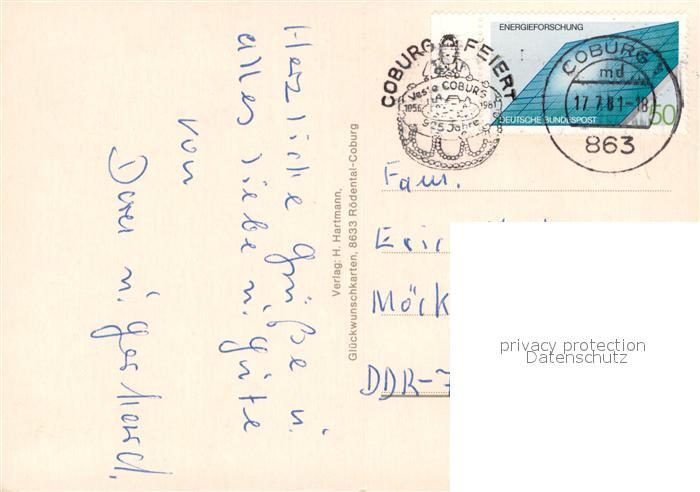 Herzliche Grüße u.
alles liebe u. gute
von
u. Gerhard.
Verlag: H. Hartmann,
Glückwunschkarten, 8633 Rödental-Coburg
COBURG FEIERT
Veste COBURG
1056 1981
925 Jahre
ENERGIEFORSCHUNG
DEUTSCHE BUNDESPOST
50
COBURG
md
17.7.81-18
863
Fam.
Eric
Möck
DDR-7
privacy protection
Datenschutz